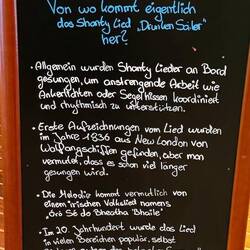 Von wo kommt eigentlich
das Shanty Lied „Drunken Sailer"
her?
• Allgemein wurden Shanty Lieder an Bord
gesungen, um anstrengende Arbeit wie
Ankerlichten oder Segel hissen koordiniert
und rhythmisch zu unterstützen.
• Erste Aufzeichnungen vom Lied wurden
im Jahre 1836 aus New London von
Walfangschiffen gefunden, aber man
vermutet, dass es schon viel länger
gesungen wird.
• Die Melodie kommt vermutlich von
einem irischen Volkslied namens
„Óró Sé do Bheatha 'Bhaile"
• Im 20. Jahrhundert wurde das Lied
in vielen Bereichen populär, selbst